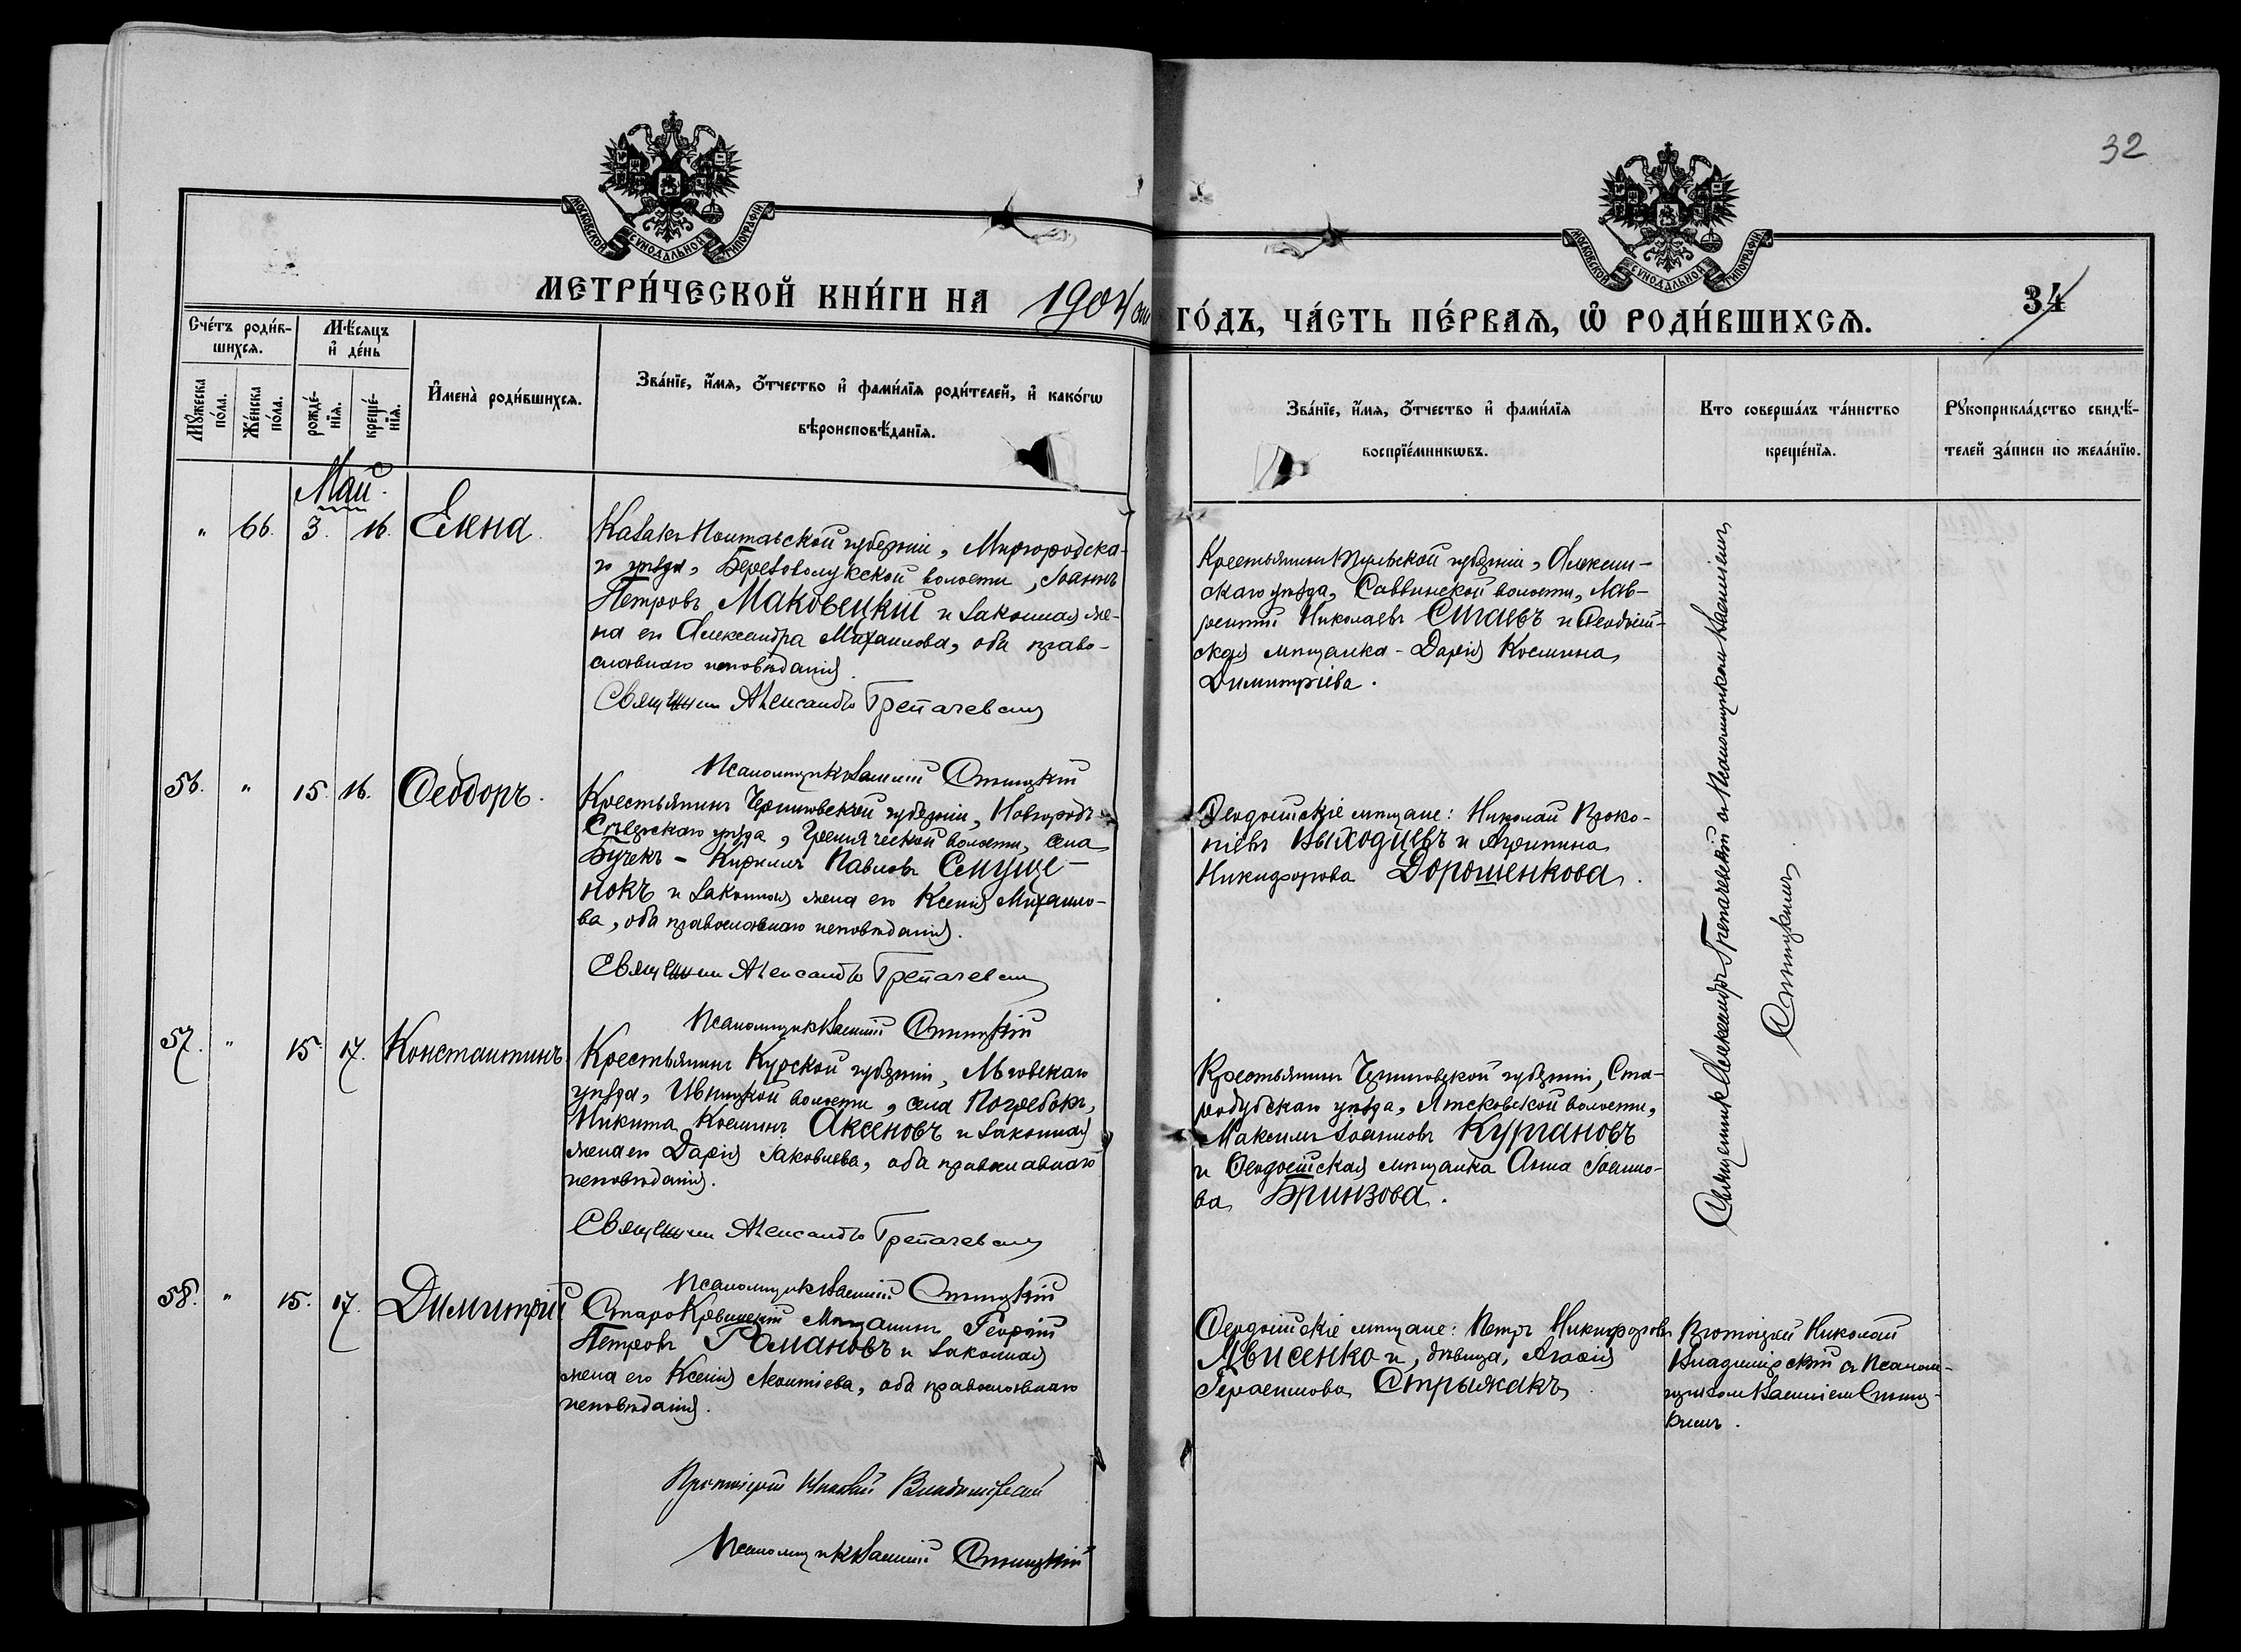 32
МОСКОВСКОЙ СУНОДАЛЬНОЙ ТИПОГРАФІИ
МОСКОВСКОЙ СУНОДАЛЬНОЙ ТИПОГРАФІИ
МЕТРИ́ЧЕСКОЙ КНИ́ГИ НА 1904 ый
ГО́ДЪ, ЧА́СТЬ ПЕ́РВАѦ, Ѿ РОДИ́ВШИХСѦ.
34
Сче́тъ роди́в-
шихсѧ.
Мꙋ́жеска
по́ла.
Же́нска
по́ла.
Мѣ́сѧцъ
и҆ де́нь
рожде́-
нїѧ.
креще́-
нїѧ.
И҆мена̀ роди́вшихсѧ.
Зва́нїе, и҆́мѧ, ѻ҆́тчество и҆ фами́лїѧ роди́телей, и҆ како́гѡ
вѣроисповѣ́данїѧ.
Зва́нїе, и҆́мѧ, ѻ҆́тчество и҆ фами́лїѧ
воспрїе́мникѡвъ.
Кто соверша́лъ та́инство
креще́нїѧ.
Рꙋкоприкла́дство свидѣ́-
телей за́писи по жела́нїю.
Май.
" 66. 3. 16. Елена.
Казакъ Полтавской губерніи, Миргородска-
го уѣзда, Березоволукской волости, Іоаннъ
Петровъ Маковецкій и законная же-
на его Александра Михаилова, оба право-
славнаго исповѣданія.
Священникъ Александръ
Псаломщикъ Василій
Крестьянинъ Тульской губерніи, Алексин-
скаго уѣзда, Саввинской волости, Лав-
рентій Николаевъ Сигаевъ и Ѳеодосій-
ская мѣщанка - Дарія Космина
Димитріева.
Священникъ Александръ съ Псаломщикомъ Василіемъ
56. " 15. 16. Ѳеодоръ.
Крестьянинъ Черниговской губерніи, Новгородъ-
Сѣверскаго уѣзда, волости, села
Бучекъ - Кириллъ Павловъ
нокъ и законная жена его Ксенія Михаило-
ва, оба православнаго исповѣданія.
Священникъ Александръ
Псаломщикъ Василій
Ѳеодосійскіе мѣщане: Николай Проко-
піевъ Выходцевъ и Агрипина
Никифорова Дорошенкова.
57. " 15. 17. Константинъ
Крестьянинъ Курской губерніи, Льговскаго
уѣзда, Ивницкой волости, села Погребокъ,
Никита Косминъ Аксеновъ и законная
жена его Дарія Іаковлева, оба православнаго
исповѣданія.
Священникъ Александръ
Псаломщикъ Василій
Крестьянинъ Черниговской губерніи, Ста-
родубскаго уѣзда, волости,
Максимъ Іоанновъ Кургановъ
и Ѳеодосійская мѣщанка Анна Іоанно-
ва Бринзова.
58. " 15. 17. Димитрій
Старо Крымскій Мѣщанинъ Георгій
Петровъ Романовъ и законная
жена его Ксенія Леонтіева, оба православнаго
исповѣданія.
Протоіерей Николай Владимірскій
Псаломщикъ Василій
Ѳеодосійскіе мѣщане: Петръ Никифоровъ
и, дѣвица,
Герасимова Стрыжакъ.
Протоіерей Николай
Владимірскій съ Псалом-
щикомъ Василіемъ